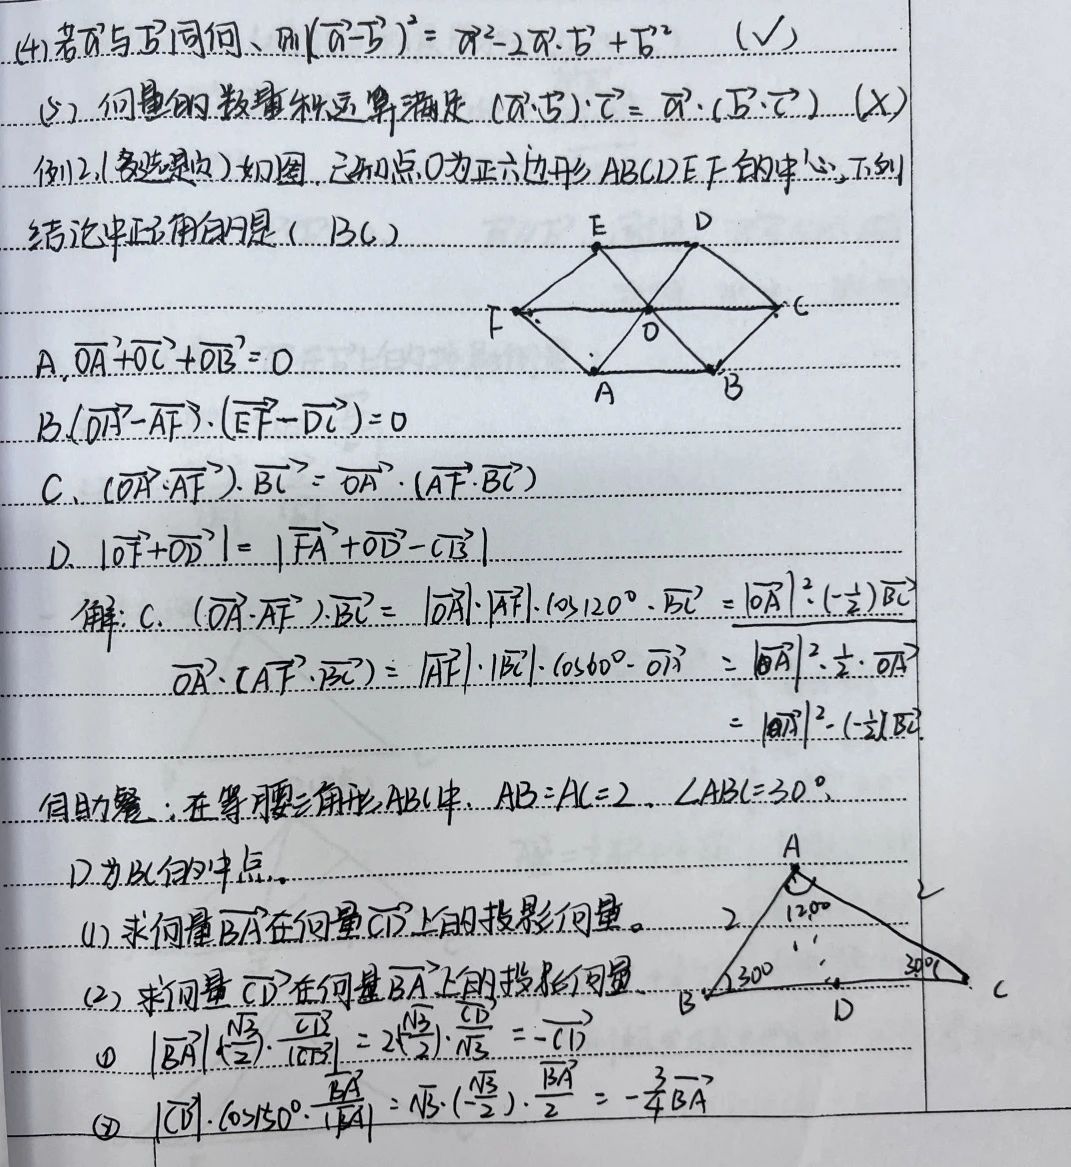 (4) 若a⃗与b⃗同向、则(a⃗-b⃗)²= a⃗²-2a⃗·b⃗+b⃗² (√)
(5) 向量的数量积运算满足 (a⃗·b⃗)·c⃗= a⃗·(b⃗·c⃗) (×)
例2.(多选题)如图,已知点O为正六边形ABCDEF的中心,下列
结论中正确的是( BC )
E D
F O C
A B
A. OA⃗+OC⃗+OB⃗=0
B.(OA⃗-AF⃗)·(EF⃗-DC⃗)=0
C、(OA⃗·AF⃗)·BC⃗=OA⃗·(AF⃗·BC⃗)
D. |OF⃗+OD⃗|=|FA⃗+OD⃗-CB⃗|
解: C. (OA⃗·AF⃗)·BC⃗= |OA⃗|·|AF⃗|·cos120°·BC⃗ = |OA⃗|²·(-1/2)BC⃗
OA⃗·(AF⃗·BC⃗)= |AF⃗|·|BC⃗|·cos60°·OA⃗ = |OA⃗|²·1/2·OA⃗
= |OA⃗|²-(-1/2)BC⃗
自助餐:在等腰三角形ABC中、AB=AC=2、∠ABC=30°,
D为BC的中点。
(1) 求向量BA⃗在向量CD⃗上的投影向量。
(2) 求向量CD⃗在向量BA⃗上的投影向量.
A
2 120° 2
B 30° D 30° C
① |BA⃗|·(-√3/2)·CD⃗/|CD⃗| = 2(-√3/2)·CD⃗/√3 = -CD⃗
② |CD⃗|·cos150°·BA⃗/|BA⃗| = √3·(-√3/2)·BA⃗/2 = -3/4BA⃗